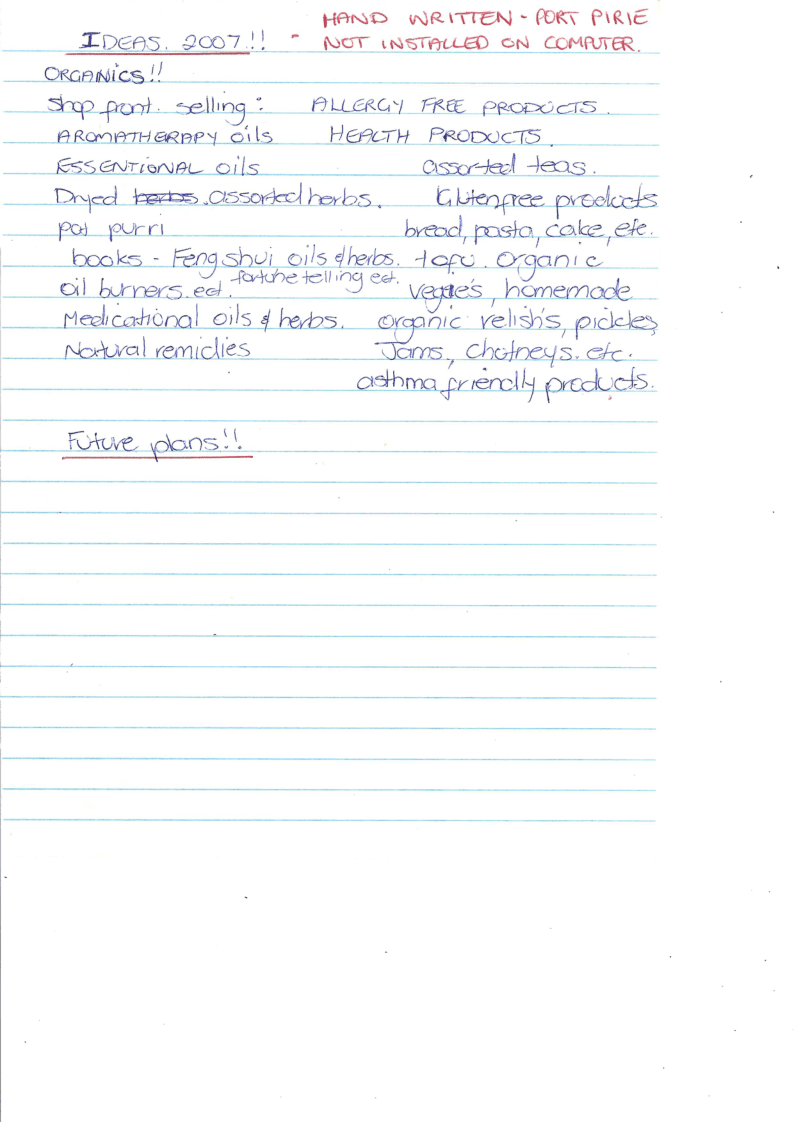 HAND WRITTEN - PORT PIRIE
IDEAS. 2007.!! - NOT INSTALLED ON COMPUTER.
ORGANICS!!
Shop front. selling: ALLERGY FREE PRODUCTS.
AROMATHERAPY oils HEALTH PRODUCTS.
ESSENTIONAL oils assorted teas.
Dryed herbs. assorted herbs. Glutenfree products
pot purri bread, pasta, cake, etc.
books - Feng shui oils & herbs. tofu. Organic
fortune telling ect.
oil burners. ect. veggie's, homemade
Medicational oils & herbs. organic relish's, pickles,
Natural remidies Jams, chotneys. etc.
asthma friendly products.
Future plans!!